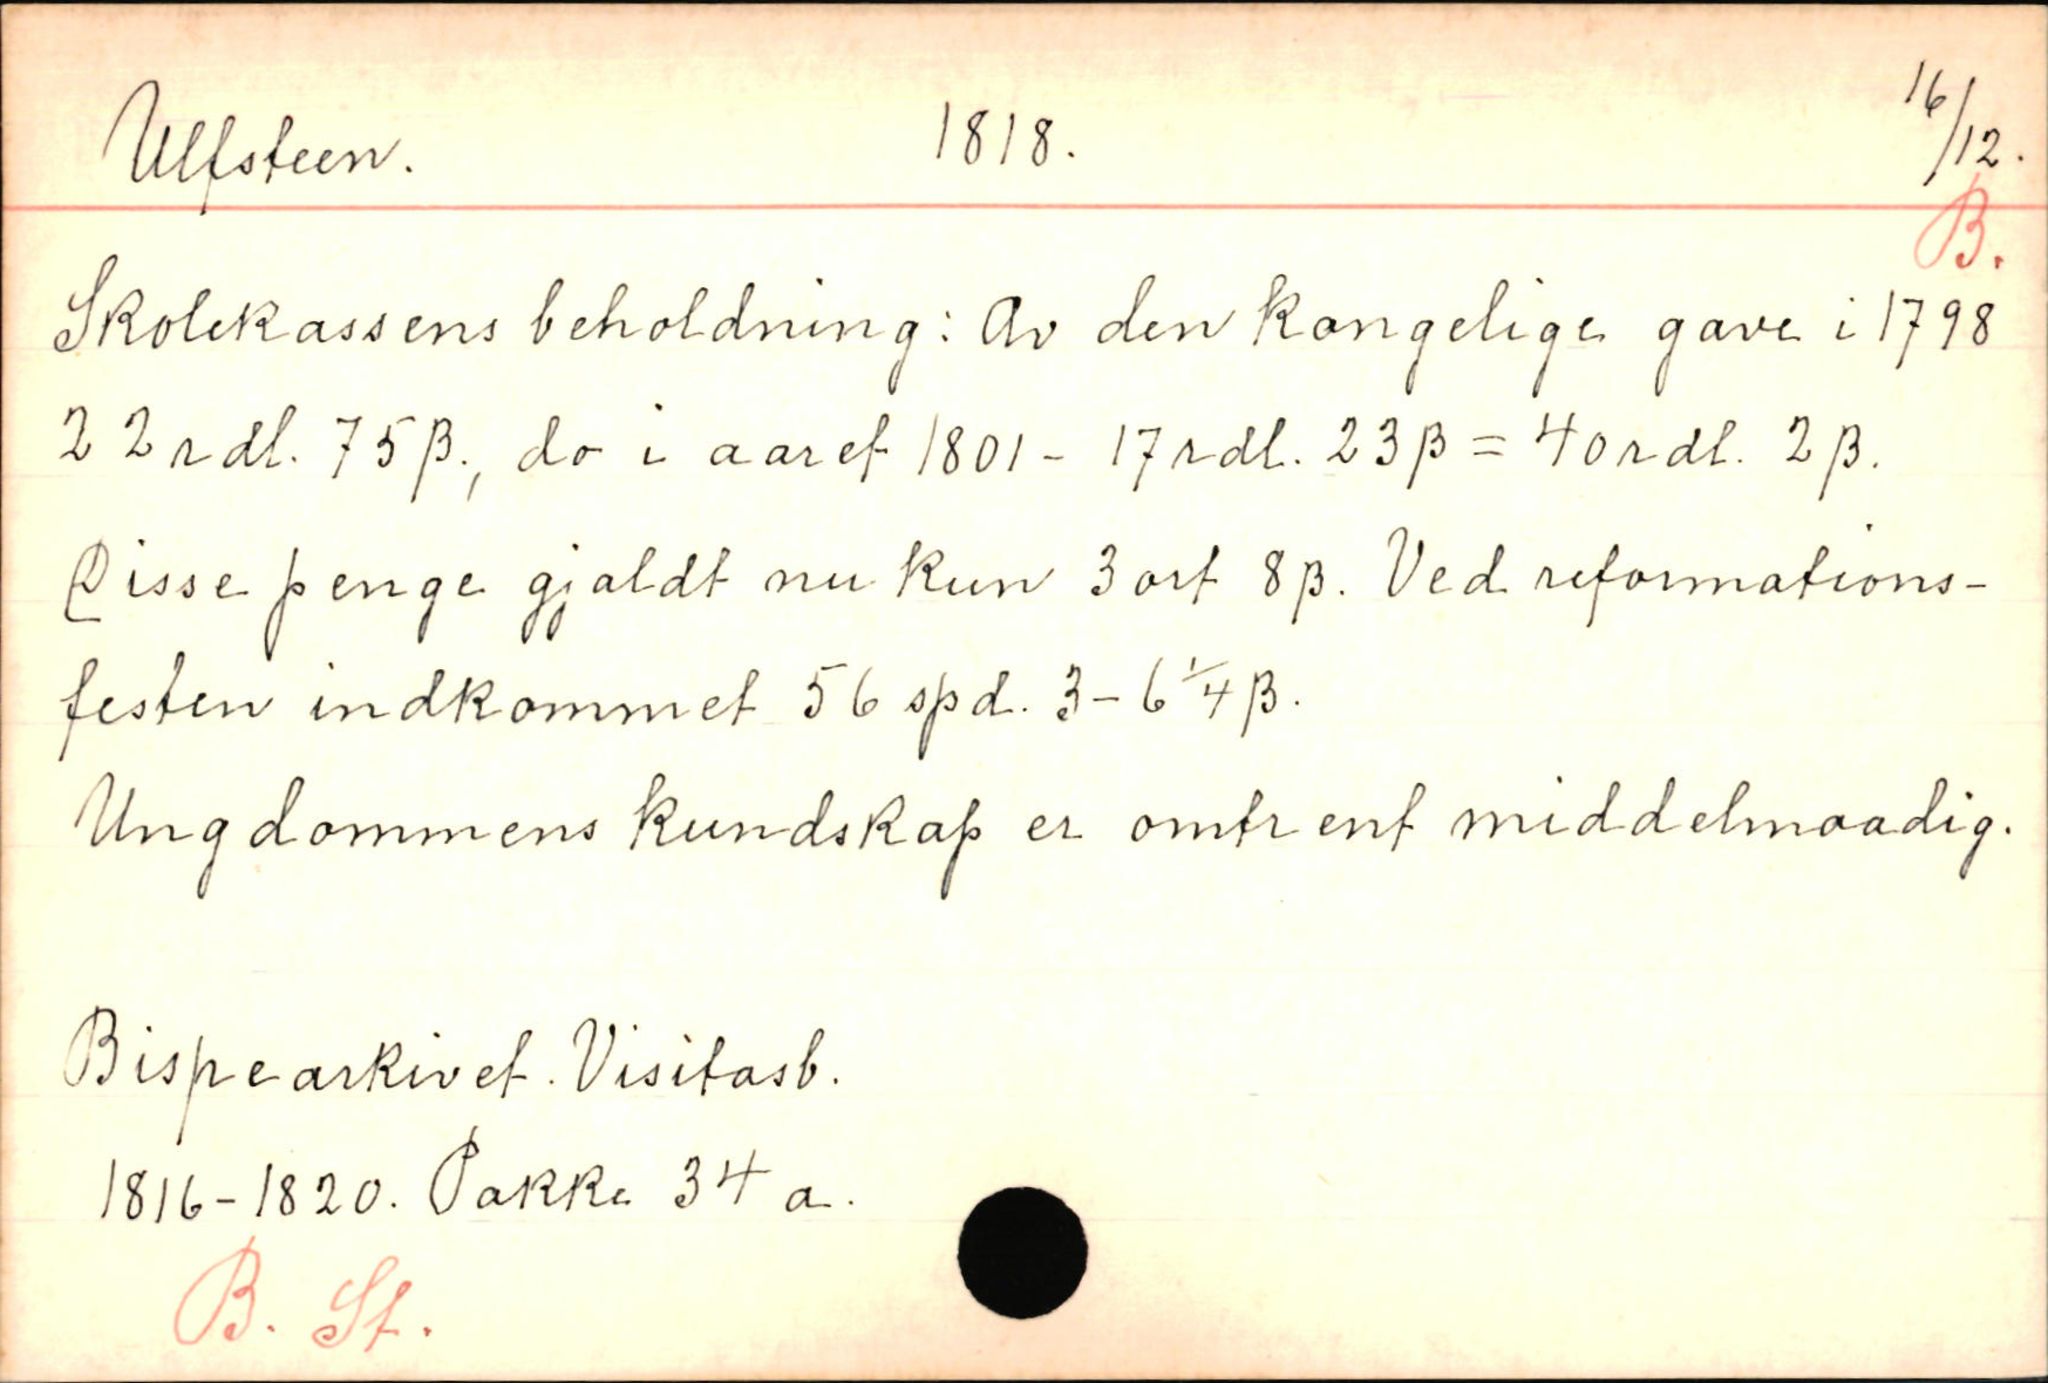 Ulfsteen. 1818. 16/12.
B.
Skolekassens beholdning: Av den kongelige gave i 1798
22 rdl. 75 β., do i aaret 1801 - 17 rdl. 23 β = 40 rdl. 2 β.
Disse penge gjaldt nu kun 3 ort 8 β. Ved reformations-
festen indkommet 56 spd. 3 - 6 1/4 β.
Ungdommens kundskap er omtrent middelmaadig.
Bispearkivet. Visitasb.
1816-1820. Pakke 34 a.
B. St.